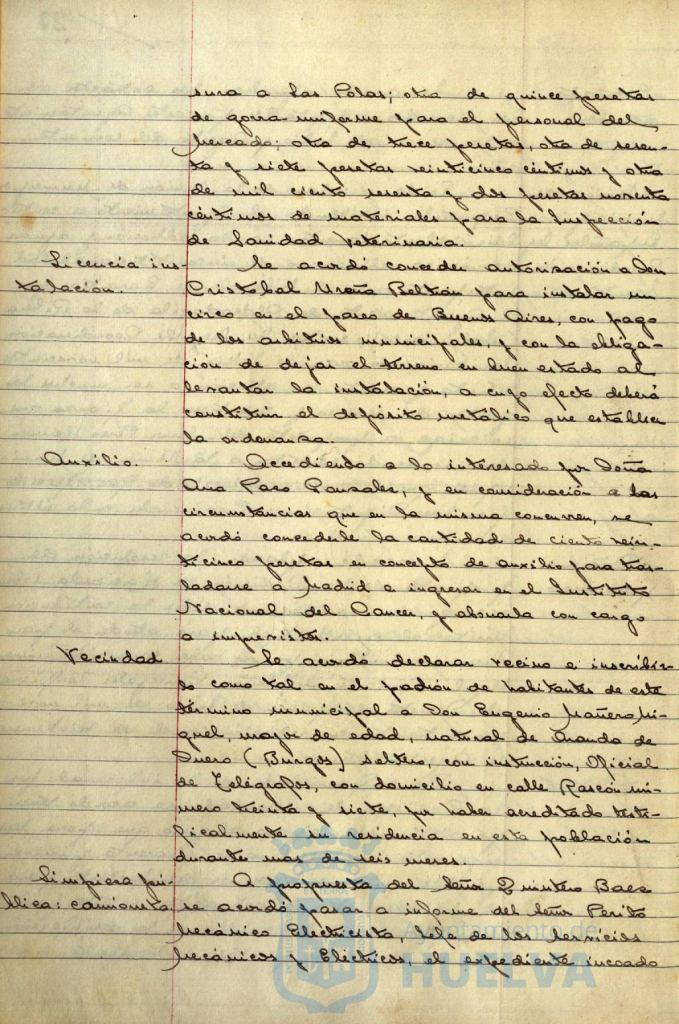 sura a Las Polas; otra de quince pesetas
de gorra uniforme para el personal del
Mercado; otra de trece pesetas, otra de sesen-
ta y siete pesetas veinticinco céntimos y otra
de mil ciento sesenta y dos pesetas noventa
céntimos de materiales para la Inspección
de Sanidad Veterinaria.
Licencia ins-
talación.
Se acordó conceder autorización a Don
Cristobal Ureña Beltrán para instalar un
circo en el paseo de Buenos Aires, con pago
de los arbitrios municipales, y con la obliga-
ción de dejar el terreno en buen estado al
levantar la instalación, a cuyo efecto deberá
constituir el depósito metálico que establece
la ordenanza.
Auxilio.
Accediendo a lo interesado por Doña
Ana Paso Gonzalez, y en consideración a las
circunstancias que en la misma concurren, se
acordó concederle la cantidad de ciento vein-
ticinco pesetas en concepto de auxilio para tras-
ladarse a Madrid e ingresar en el Instituto
Nacional del Cancer, y abonarla con cargo
a imprevistos.
Vecindad
Se acordó declarar vecino e inscribir-
lo como tal en el padrón de habitantes de este
término municipal a Don Eugenio Mañero Mi-
guel, mayor de edad, natural de Aranda de
Duero (Burgos) soltero, con instrucción, Oficial
de Telégrafos, con domicilio en calle Rascón nú-
mero treinta y siete, por haber acreditado testi-
ficalmente su residencia en esta población
durante mas de seis meses.
Limpieza pú-
blica: camioneta
A propuesta del Señor Quintero Baez
se acordó pasar a informe del Señor Perito
Mecánico Electricista, Jefe de los Servicios
Mecánicos y Eléctricos, el expediente incoado
Ayuntamiento de
HUELVA